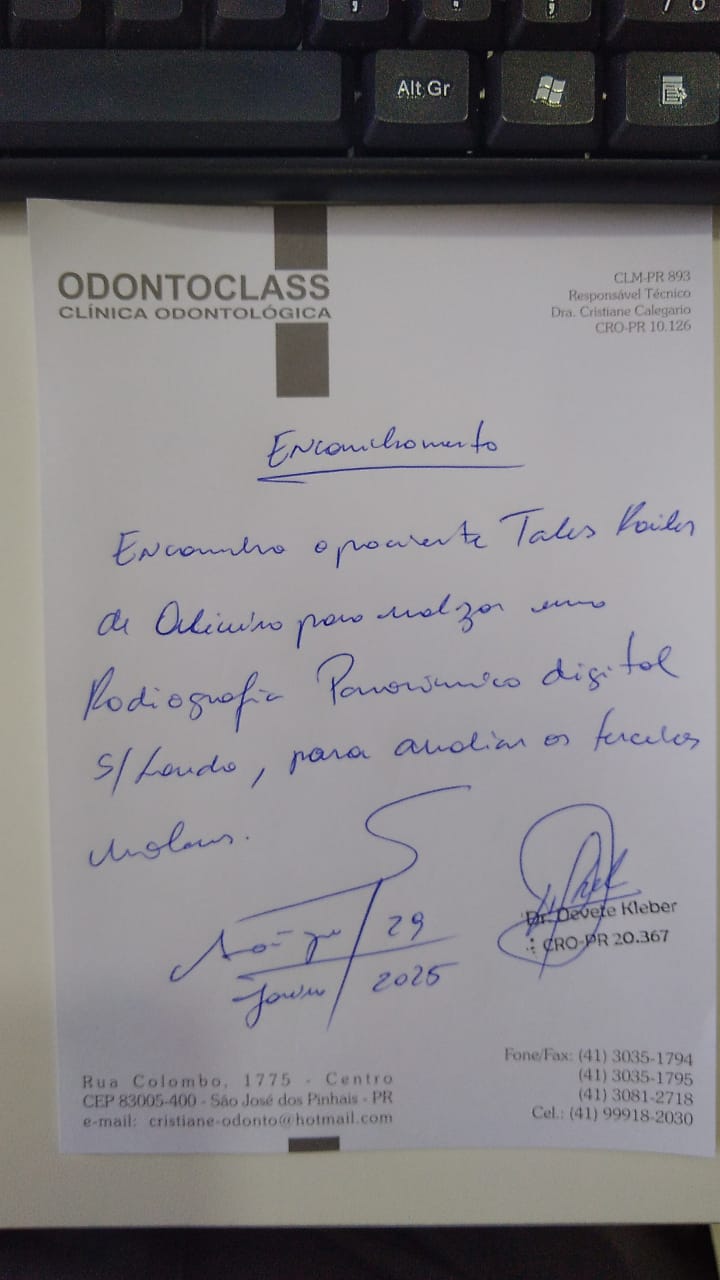 Alt Gr
ODONTOCLASS
CLÍNICA ODONTOLÓGICA
CLM-PR 893
Responsável Técnico
Dra. Cristiane Calegario
CRO-PR 10.126
Encaminhamento
Encaminho o paciente Tales
de para realizar uma
Radiografia Panorâmica digital
S/ Laudo, para avaliar os terceiros
molares.
29
2025
Dr. Devete Kleber
CRO-PR 20.367
Rua Colombo, 1775 - Centro
CEP 83005-400 - São José dos Pinhais - PR
e-mail: cristiane-odonto@hotmail.com
Fone/Fax: (41) 3035-1794
(41) 3035-1795
(41) 3081-2718
Cel.: (41) 99918-2030